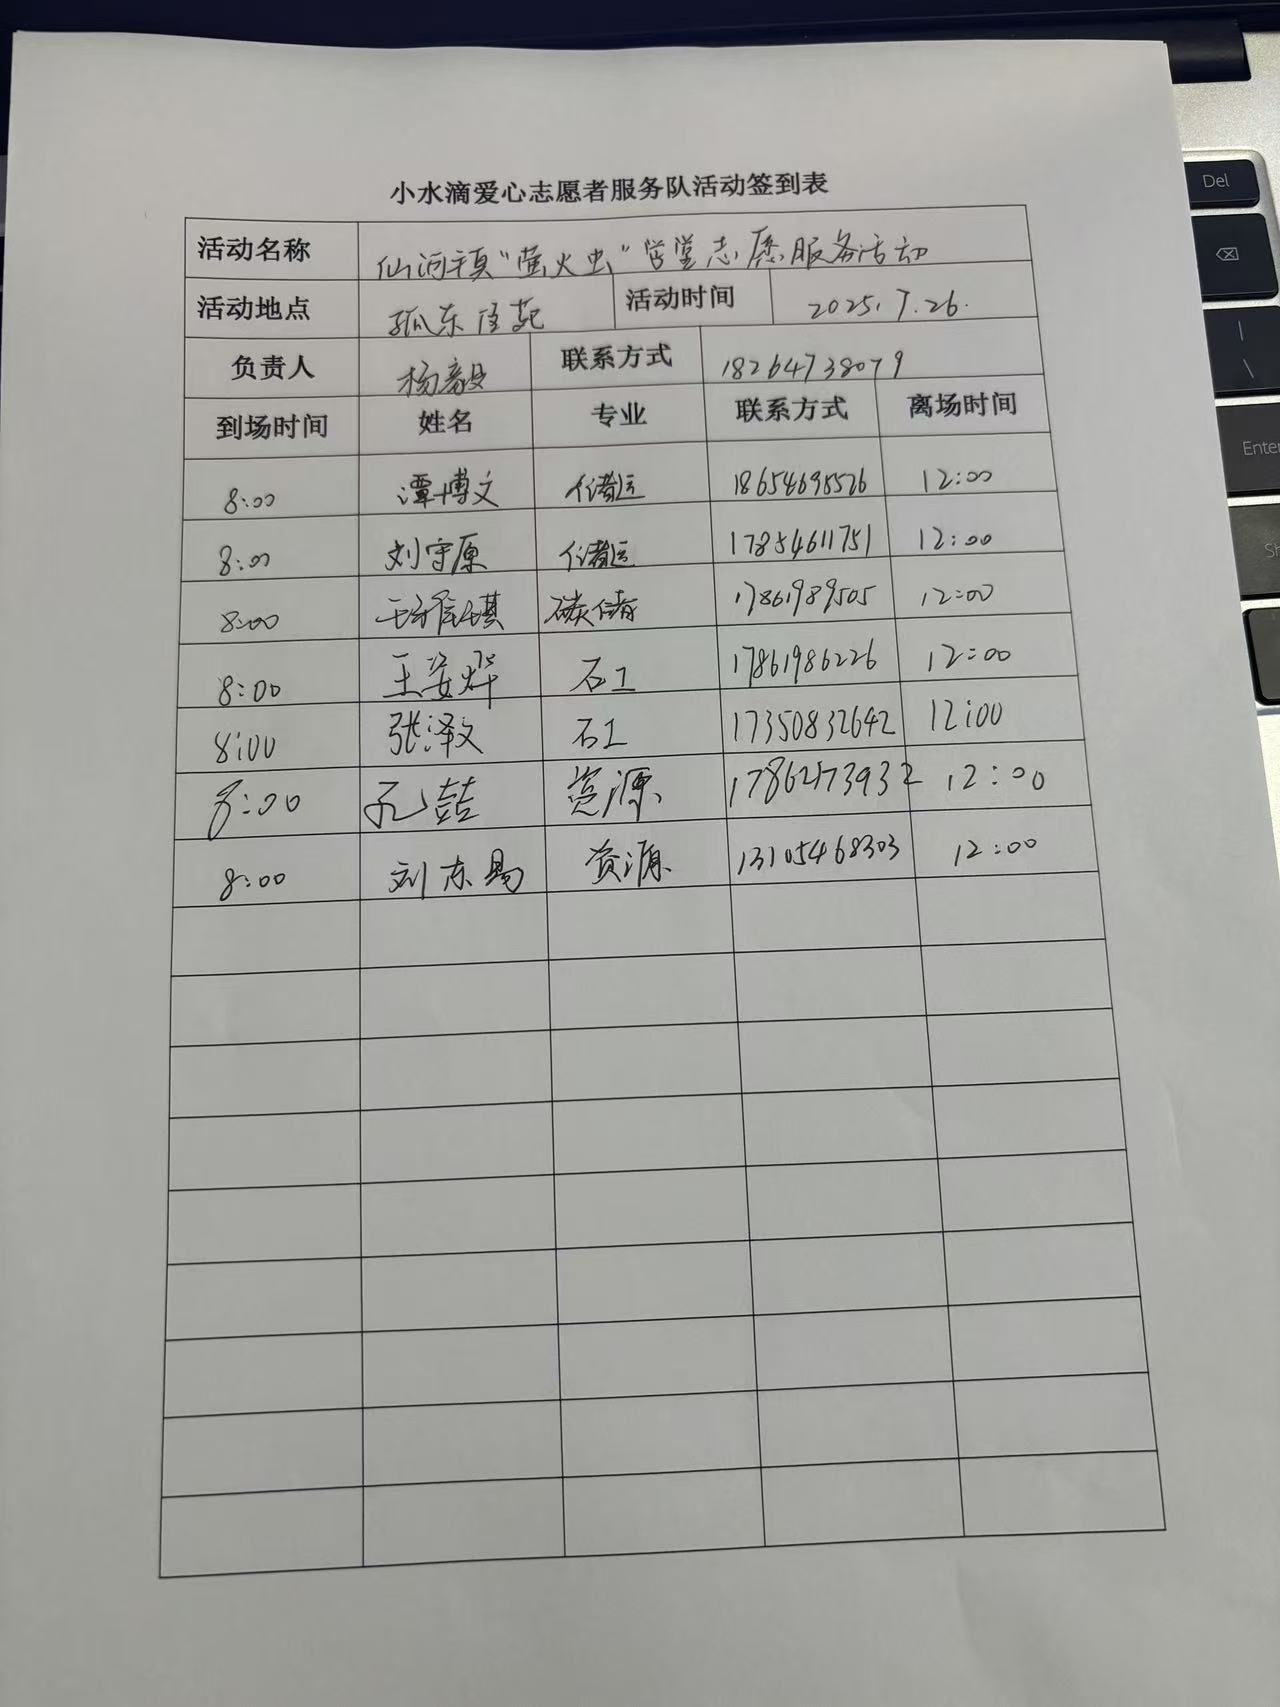 小水滴爱心志愿者服务队活动签到表
活动名称 仙河镇"萤火虫"学堂志愿服务活动
活动地点 孤东佳苑 活动时间 2025.7.26.
负责人 杨毅 联系方式 18264738079
到场时间 姓名 专业 联系方式 离场时间
8:00 谭博文 储运 18654695526 12:00
8:00 刘守原 储运 17854611751 12:00
8:00 碳储 17861989505 12:00
8:00 王姿烨 石工 17861986226 12:00
8:00 张泽文 石工 17350832642 12:00
8:00 孔喆 资源 17862173932 12:00
8:00 刘东易 资源 13105468303 12:00
Del
Enter